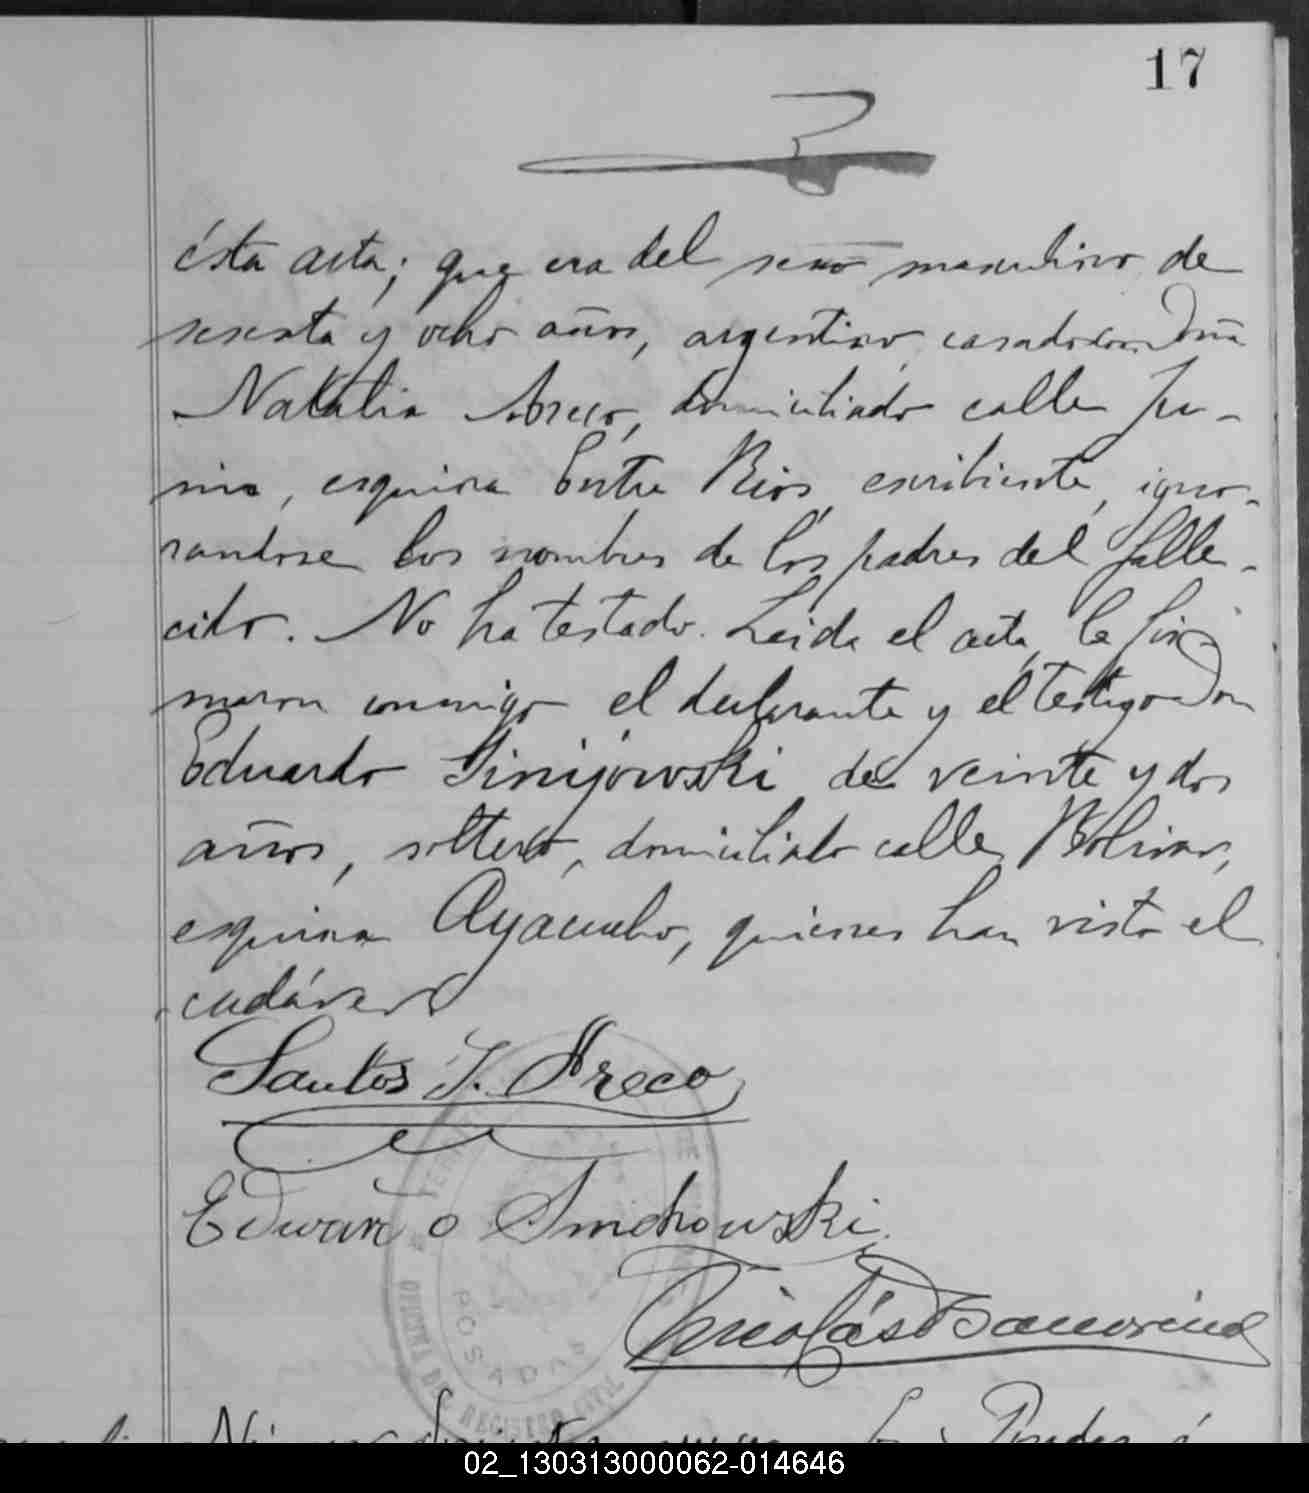 17
ésta acta; que era del sexo masculino de
sesenta y ocho años, argentino, casado con Dña
Natalia Areco, domiciliado calle Ju-
nin, esquina Entre Rios, escribiente, igno-
randose los nombres de los padres del falle-
cido. No ha testado. Leida el acta, la fir-
maron conmigo el declarante y el testigo Don
Eduardo Sinijowski de veinte y dos
años, soltero, domiciliado calle Bolivar,
esquina Ayacucho, quienes han visto el
cadáver
Santos J. Areco
Eduardo
Nicolás
OFICINA DEL REGISTRO CIVIL
POSADAS
02_130313000062-014646